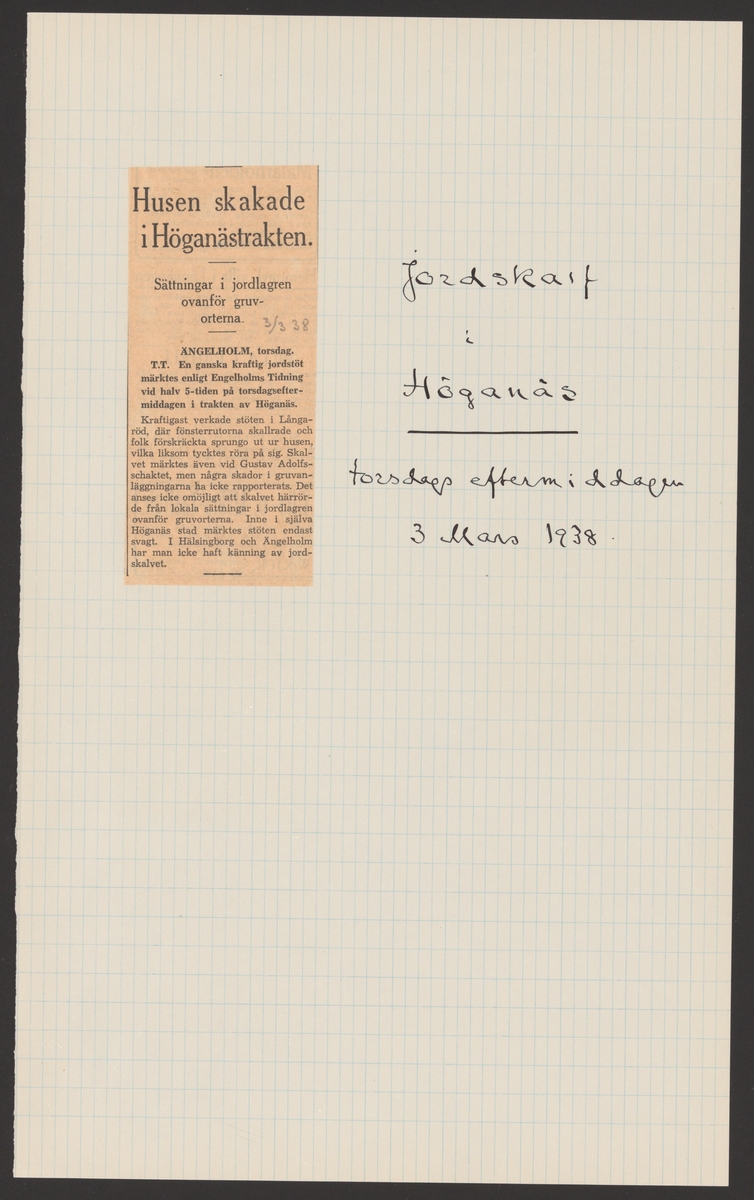 Husen skakade
i Höganästrakten.
Sättningar i jordlagren
ovanför gruv-
orterna.
3/3 38
ÄNGELHOLM, torsdag.
T.T. En ganska kraftig jordstöt
märktes enligt Engelholms Tidning
vid halv 5-tiden på torsdagsefter-
middagen i trakten av Höganäs.
Kraftigast verkade stöten i Långa-
röd, där fönsterrutorna skallrade och
folk förskräckta sprungo ut ur husen,
vilka liksom tycktes röra på sig. Skal-
vet märktes även vid Gustav Adolfs-
schaktet, men några skador i gruvan-
läggningarna ha icke rapporterats. Det
anses icke omöjligt att skalvet härrör-
de från lokala sättningar i jordlagren
ovanför gruvorterna. Inne i själva
Höganäs stad märktes stöten endast
svagt. I Hälsingborg och Ängelholm
har man icke haft känning av jord-
skalvet.
Jordskalf
i
Höganäs
torsdags eftermiddagen
3 Mars 1938.